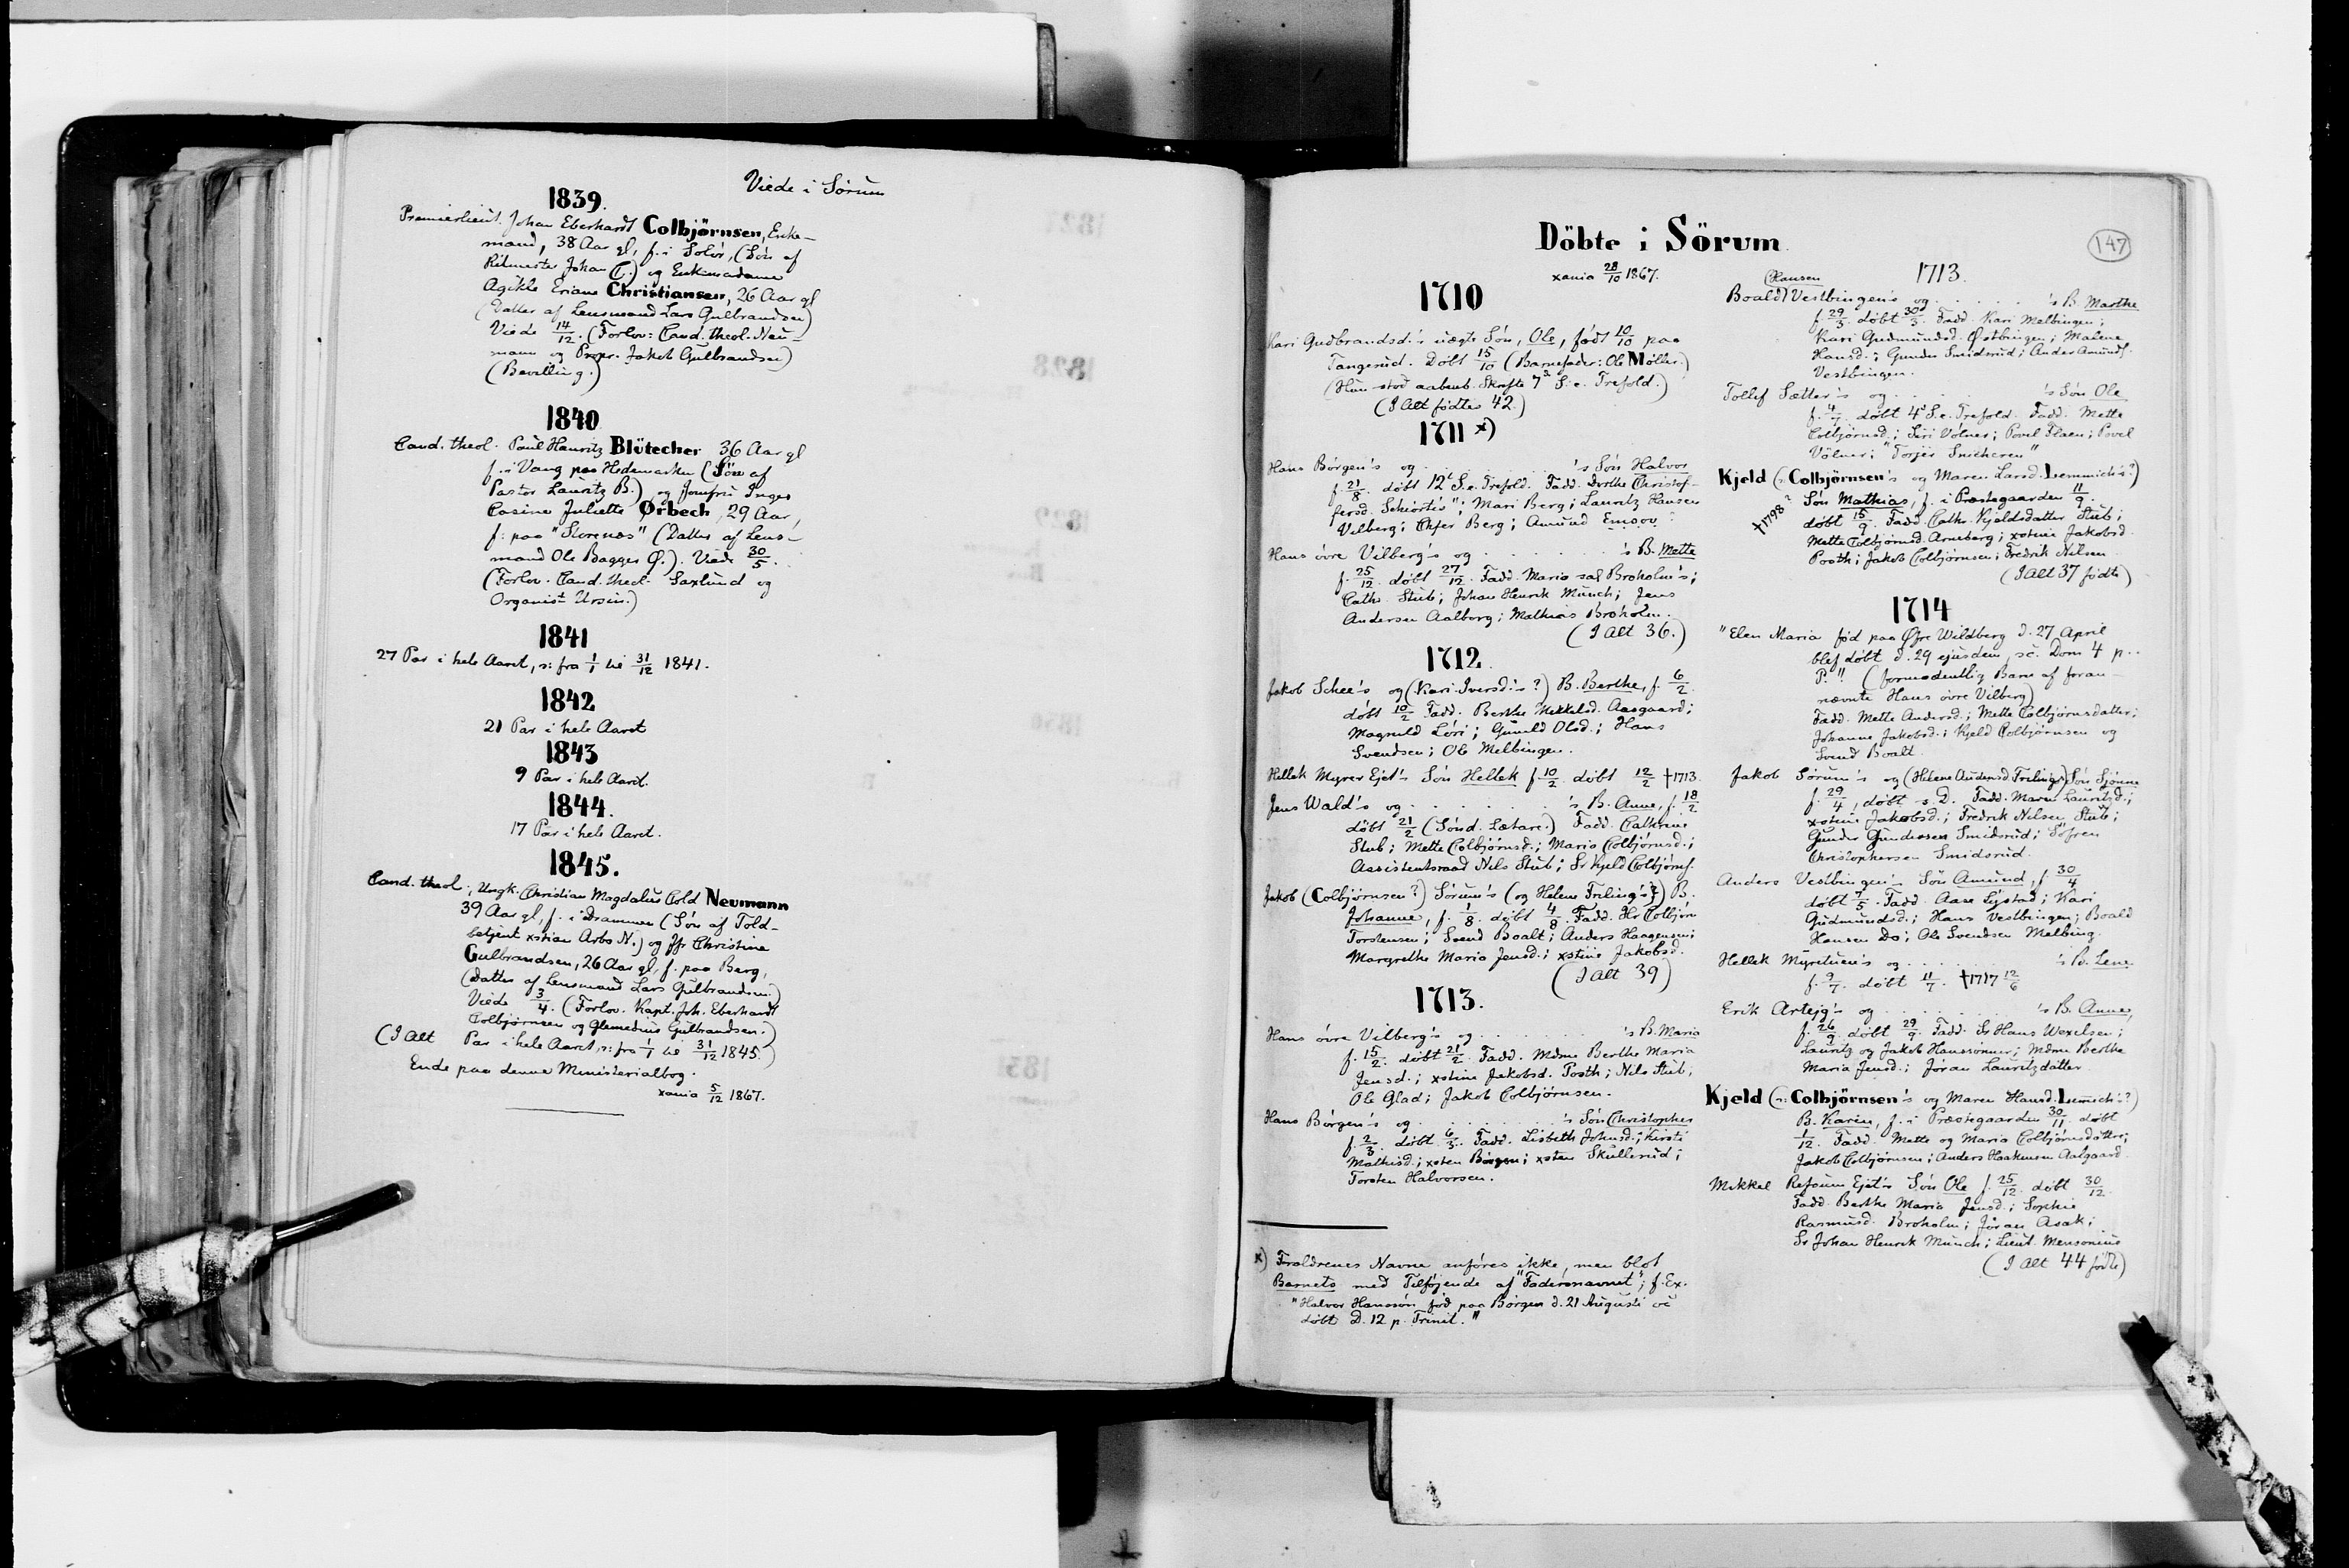 Viede i Sörum
1839.
Premierlieut. Johan Eberhardt Colbjørnsen, Enke-
mand, 38 Aar gl, f. i Solör, (Sön af
Ritmester Johan C.) og Enkemadame
Agikle Eriane Christiansen, 26 Aar gl
(Datter af Lensmand Lars Gulbrandsen)
Viede 14/12. (Forlov: Cand. theol. Neu-
mann og Propr. Jakob Gulbrandsen)
(Bevilling.)
1840
Cand. theol. Paul Hauritz Blütecher 36 Aar gl
f. i Vang paa Hedemarken (Sön af
Pastor Lauritz B.) og Jomfru Inger
Casine Juliette Ørbech, 29 Aar,
f. paa "Slorenæs" (Datter af Lens-
mand Ole Bagger Ø.). Viede 30/5.
(Forlov. Cand. theol. Saxlund og
Organist Ursin.)
1841
27 Par i hele Aaret, ɔ: fra 1/1 til 31/12 1841.
1842
21 Par i hele Aaret
1843
9 Par i hele Aaret.
1844.
17 Par i hele Aaret.
1845.
Cand. theol., Ungk. Christian Magdalus Cold Neumann
39 Aar gl, f. i Drammen (Sön af Told-
betjent xstian Arbo N.) og Jfr Christine
Gulbrandsen, 26 Aar gl, f. paa Berg,
(Datter af Lensmand Lars Gulbrandsen.)
Viede 3/4. (Forlov. Kapt. Joh. Eberhardt
Colbjørnsen og Gulbrandsen.)
(I Alt Par i hele Aaret, ɔ: fra 1/1 til 31/12 1845.)
Ende paa denne Ministerialbog.
xania 5/12 1867.
147
Döbte i Sörum
xania 28/10 1867.
1710
Kari Gudbrandsd.'s uægte Sön, Ole, födt 10/10 paa
Tangerud. Döbt 15/10 (Barnefader: Ole Möller.)
(Hun stod aabenb. Skrifte 7de S. e. Trefold.)
(I Alt födtes 42.)
1711 x)
Hans Börgen's og . . . . 's Sön Halvor
f. 21/8. döbt 12te S. e. Trefold. Fadd. Dorthe Christof-
fersd. "Schiortis"; Mari Berg; Lauritz Hansen
Vilberg; Berg; Amund
Hans övre Vilberg's og . . . . 's B. Mette
f. 25/12. döbt 27/12. Fadd. Maria sal Broholm's;
Cathr. Stub; Johan Henrik Munch; Jens
Andersen Aalborg; Mathias Broholm.
(I Alt 36.)
1712.
Jakob Schee's og (Kari Iversd.'s?) B. Berthe, f. 6/2.
döbt 10/2 Fadd. Berthe Mikkelsd. Aasgaard;
Magnild Löri; Gunild Olsd.; Hans
Svendsen; Ole Melbingen.
Hellek Myrer Ejet's Sön Hellek f. 10/2. döbt 12/2 †1713.
Jens Wald's og . . . . 's B. Anne, f. 18/2
döbt 21/2 (Sönd. Lætare.) Fadd. Cathrine
Stub; Mette Colbjörnsd.; Maria Colbjörnsd.;
Assistentsraad Nils Stub; Sr Kjeld Colbjörns.
Jakob (Colbjörnsen?) Sörum's (og Helene Friling's?) B.
Johanne, f. 1/8. döbt 4/8. Fadd. Hr Colbjörn
Torstensen; Svend Boalt; Anders Haagensen;
Margrethe Maria Jensd.; xstine Jakobsd.
(I Alt 39)
1713.
Hans övre Vilberg's og . . . . 's B. Maria
f. 15/2. döbt 21/2. Fadd. Mdme Berthe Maria
Jensd.; xstine Jakobsd. Posth; Nils Stub;
Ole Glad; Jakob Colbjörnsen.
Hans Börgen's og . . . . 's Sön Christopher
f. 2/3. döbt 6/3. Fadd. Lisbeth Johnsd.; Kirsti
Mathisd.; xsten Börgen; xsten Skullerud;
Torsten Halvorsen.
x) Forældrenes Navne anföres ikke, men blot
Barnets med Tilföjende af "Fadersnavnet"; f. Ex.
"Halvor Hanssön föd paa Börgen d. 21 Augusti oc
döbt D. 12 p. Trinit."
1713.
(Hansen
Boald) Vestbingen's og . . . . 's B. Marthe
f. 29/3. döbt 30/3. Fadd. Kari Melbingen;
Kari Gudmundsd. Østbingen; Malene
Hansd.; Gunder Smidsrud; Anders Amunds.
Vestbingen.
Tollef Sætter's og . . . . 's Sön Ole
f. 4/7. döbt 4de S. e. Trefold. Fadd. Mette
Colbjörnsd.; Siri Völner; Povel Flaen; Povel
Völner; "Torjer Snicheren"
Kjeld (ɔ: Colbjörnsen's og Maren Larsd. Lemmich's?)
†1798? Sön Mathias, f. i Præstegaarden 11/9.
döbt 15/9. Fadd. Cathr. Kjeldsdatter Stub;
Mette Colbjörnsd. Arneberg; xstine Jakobsd.
Posth; Jakob Colbjörnsen; Fredrik Nilsen
(I Alt 37 födte)
1714
"Elen Maria föd paa Øfre Wildberg d. 27 April
blef döbt d. 29 ejusdem, sc. Dom 4 p.
P." (formodentlig Barn af foran-
nævnte Hans övre Vilberg)
Fadd. Mette Andersd.; Mette Colbjörnsdatter;
Johanne Jakobsd.; Kjeld Colbjörnsen og
Svend Boalt.
Jakob Sörum's og (Helene Andersd. Friling's) Sön Sjönne
f. 29/4, döbt s. D. Fadd. Maren Lauritzd.;
xstine Jakobsd.; Fredrik Nilsen Stub;
Gunder Gundersen Smidsrud; Söfren
Christophersen Smidsrud.
Anders Vestbingen's Sön Amund, f. 30/4
döbt 7/5. Fadd. Aase Lystad; Kari
Gudmundsd.; Hans Vestbingen; Boald
Hansen Do; Ole Svendsen Melbing.
Hellek Myretuen's og . . . . 's B. Lene
f. 9/7. döbt 11/7. †1717 12/6
Erik Artejg's og . . . . 's B. Anne,
f. 26/9. döbt 29/9. Fadd. Sr Hans Wexelsen;
Lauritz og Jakob Hanssönner; Mdme Berthe
Maria Jensd.; Jöran Lauritzdatter
Kjeld (ɔ: Colbjörnsen's og Maren Hansd. Lemich's?)
B. Karen, f. i Præstegaarden 30/11 döbt
1/12. Fadd. Mette og Maria Colbjörnsdöttre;
Jakob Colbjörnsen; Anders Haakensen Aalgaard.
Mikkel Refsum Ejet's Sön Ole f. 25/12. döbt 30/12.
Fadd. Berthe Maria Jensd.; Sophie
Rasmusd. Broholm; Jöran Asak;
Sr Johan Henrik Munch; Lieut. Mensonius
(I Alt 44 födte)